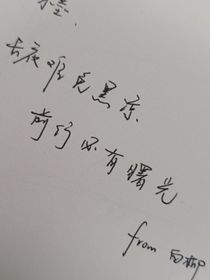 长夜难免黑凉
前行必有曙光
from 白柳